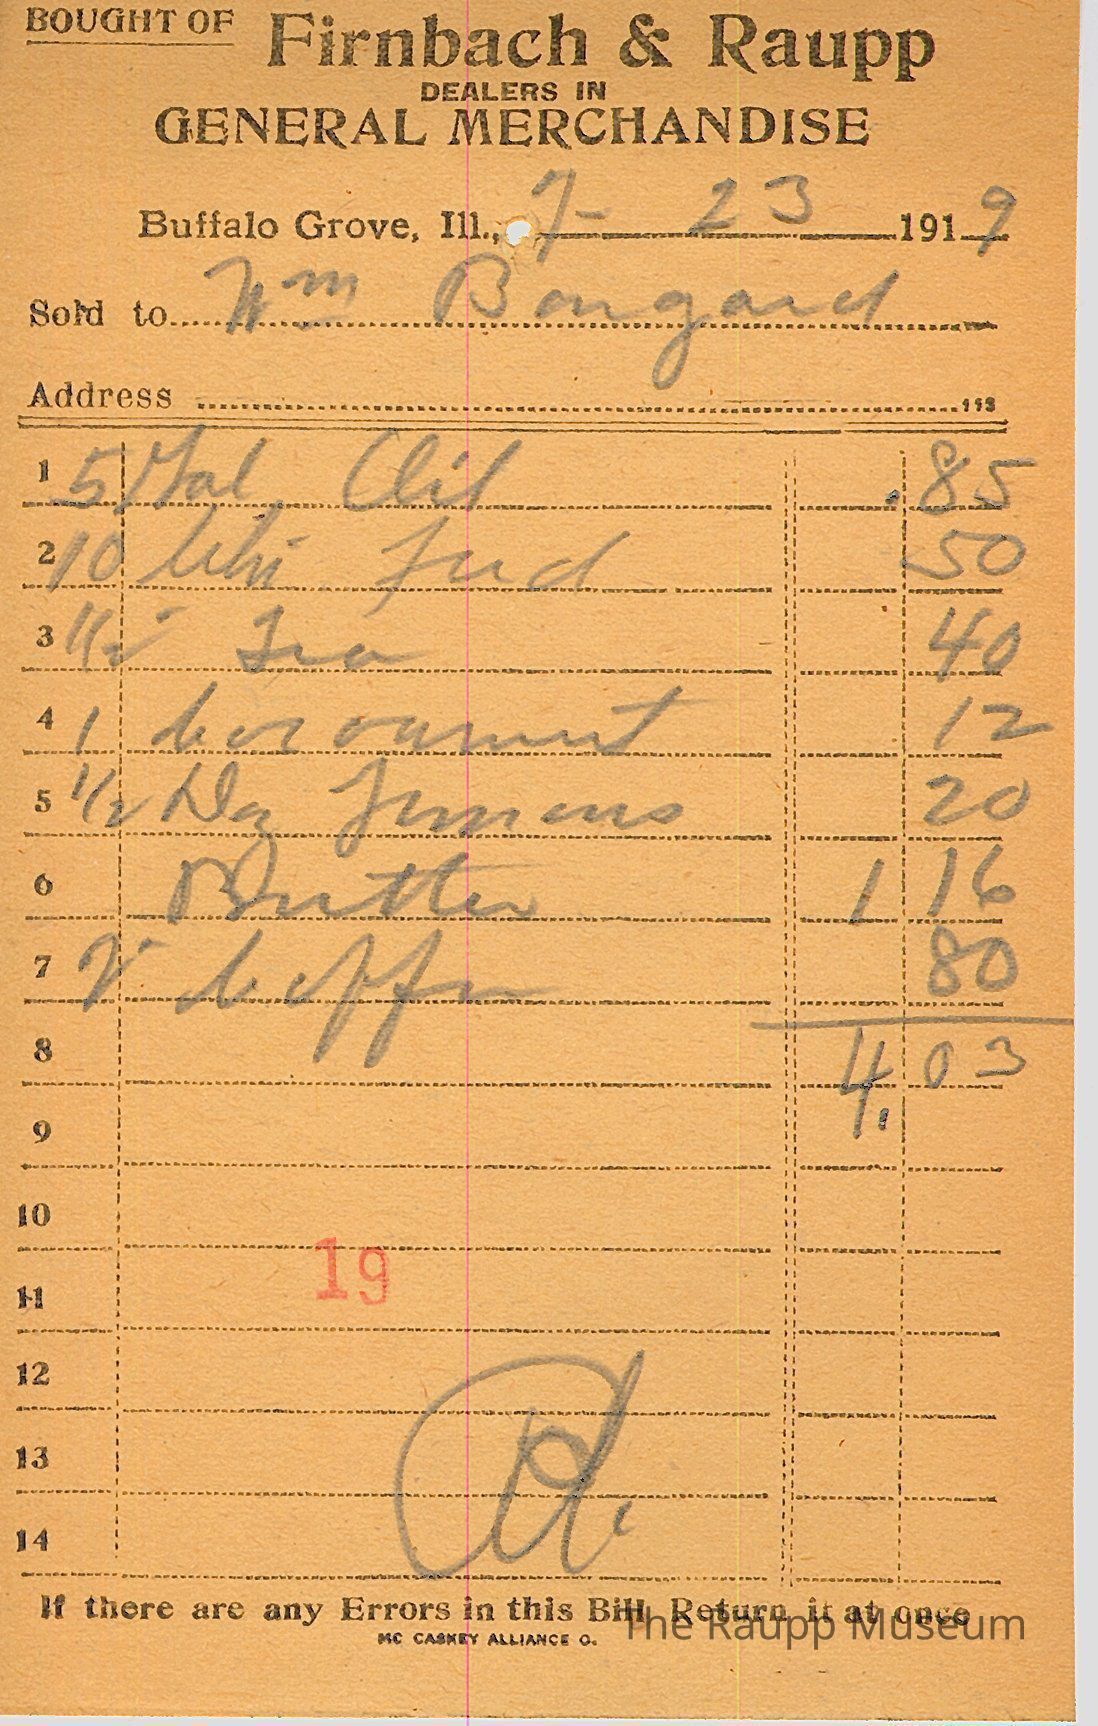 BOUGHT OF
Firnbach & Raupp
DEALERS IN
GENERAL MERCHANDISE
Buffalo Grove, Ill., 7- 23 1919
Sold to Wm Bongard
Address
113
1 5 Gal Oil .85
2 10 Chi Feed 50
3 1/2 " Tea 40
4 1 12
5 1/2 Dz 20
6 Butter 1 16
7 2 " Coffee 80
8 4.03
9
10
19
11
12
13
14
If there are any Errors in this Bill, Return it at once
MC CASKEY ALLIANCE O.
The Raupp Museum